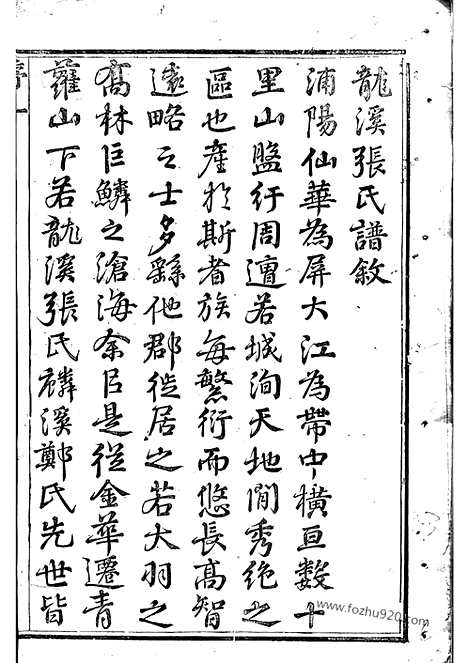 龍溪張氏譜敘
浦陽仙華為屏大江為帶中橫亘數十
里山盤紆周遭若城洵天地間秀絕之
區也産於斯者族每繁衍而悠長高智
遠略之士多繇他郡徙居之若大羽之
喬林巨鱗之滄海余㠯是從金華遷青
蘿山下若龍溪張氏麟溪鄭氏先世皆
www.fozhu920.com